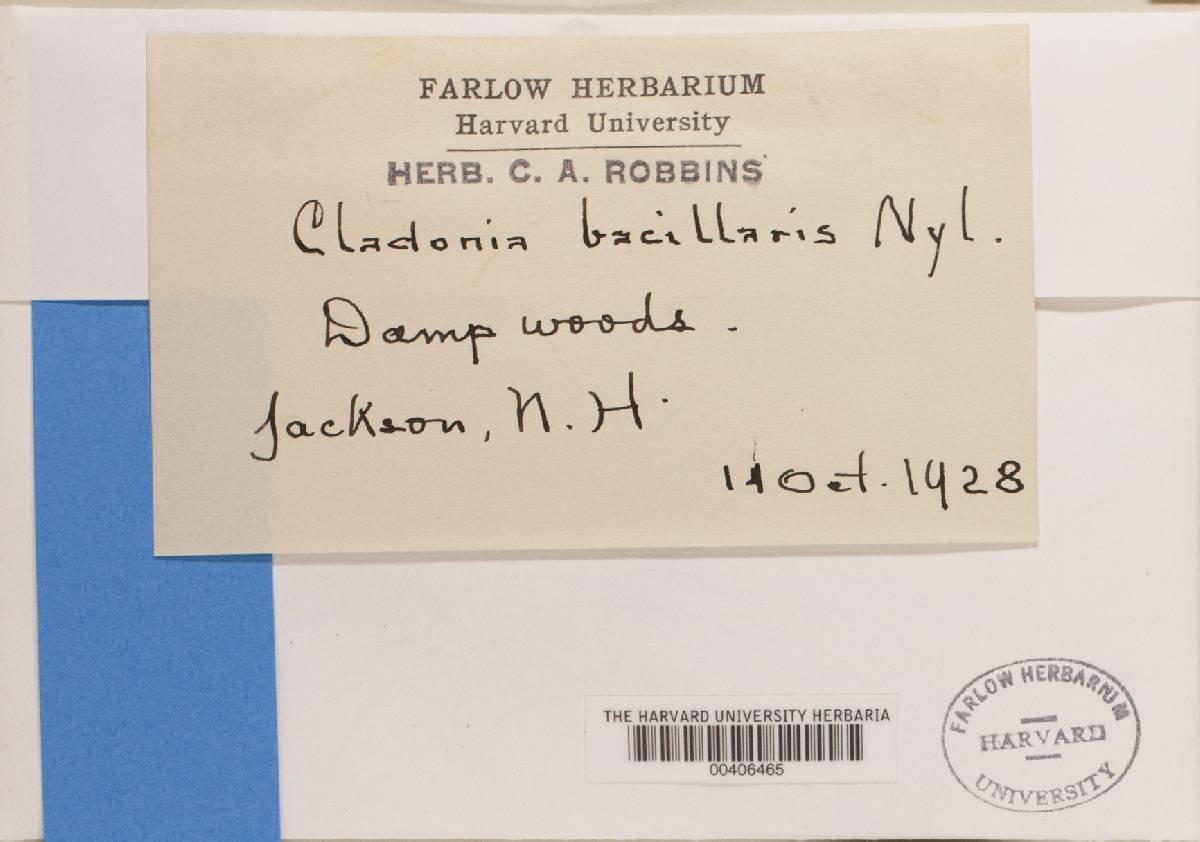 FARLOW HERBARIUM
Harvard University
HERB. C. A. ROBBINS
Cladonia bacillaris Nyl.
Damp woods.
Jackson, N.H.
11 Oct. 1928
THE HARVARD UNIVERSITY HERBARIA
00406465
FARLOW HERBARIUM
HARVARD
UNIVERSITY